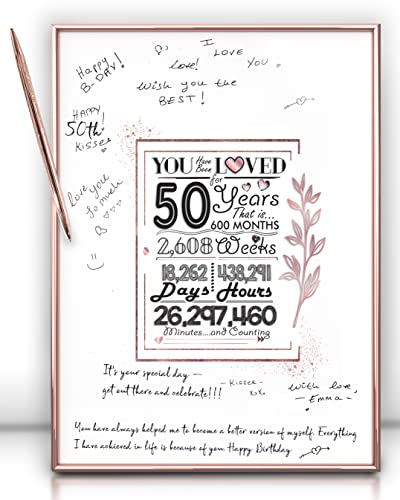 Happy
B-DAY!
I
LOVE
YOU
love!
Wish you the
BEST!
HAPPY
50th!
Kisses
love you
so much
YOU Have Been LOVED
for
50 Years
That is...
600 MONTHS
2,608 Weeks
18,262 438,291
Days Hours
26,297,460
Minutes....and Counting
It's your special day –
get out there and celebrate!!!
- Kisses -
xoxo
With love,
- Emma -
You have always helped me to become a better version of myself. Everything
I have achieved in life is because of you Happy Birthday